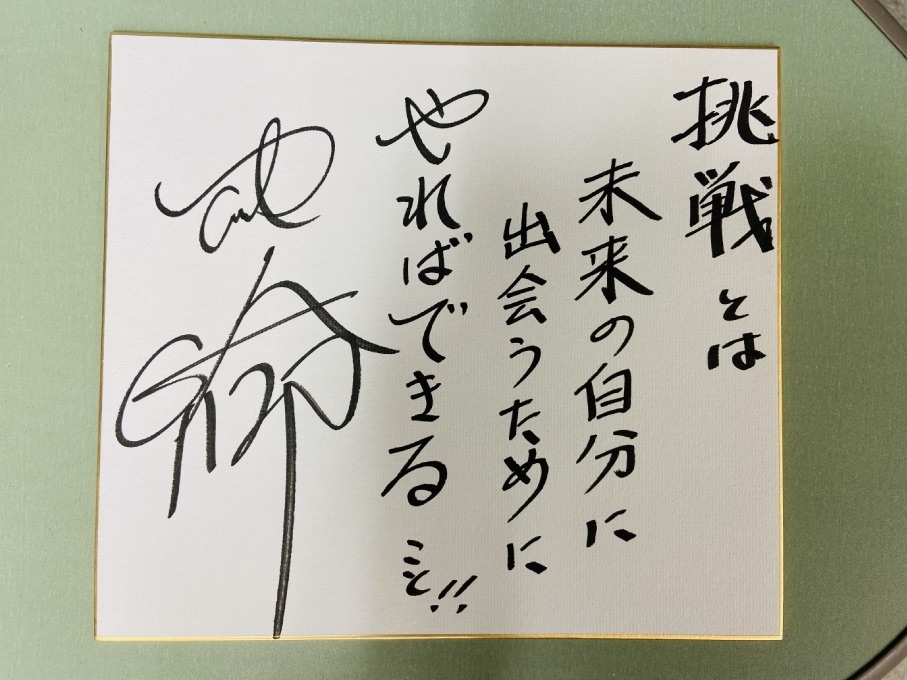 挑戦とは
未来の自分に
出会うために
やればできる